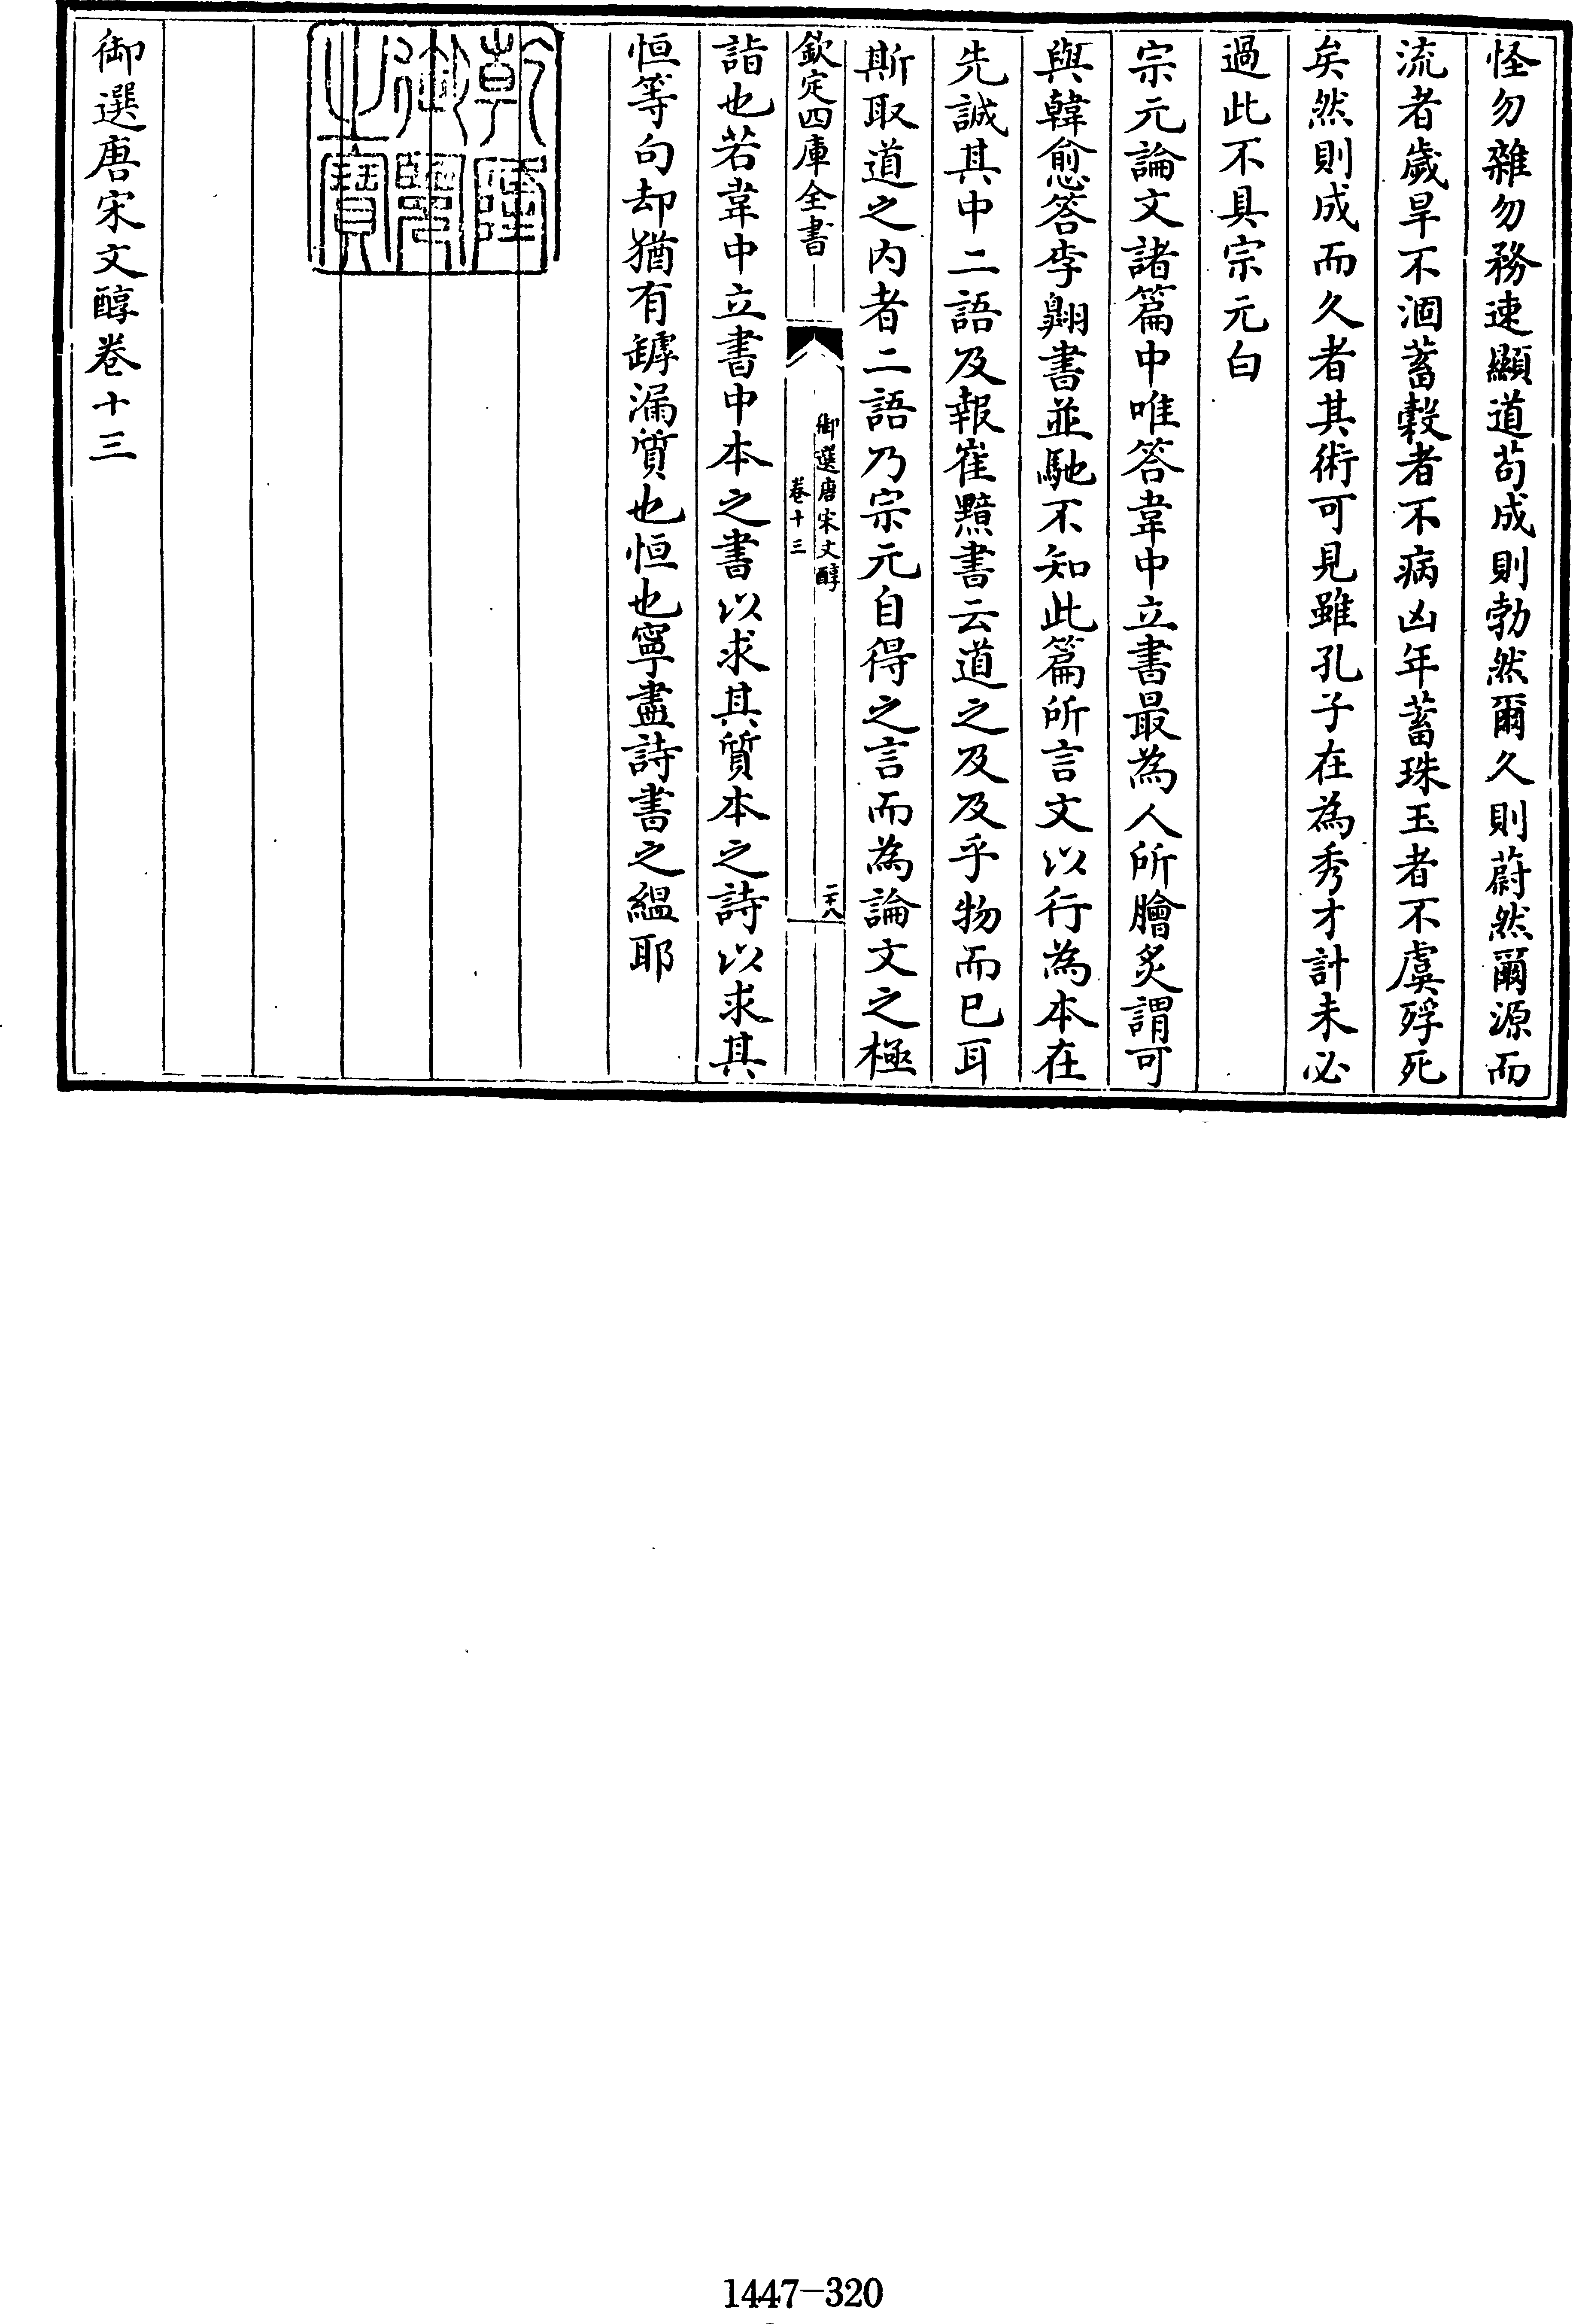 怪勿雜勿務速顯道苟成則勃然爾久則蔚然爾源而
流者歲旱不涸蓄穀者不病凶年蓄珠玉者不虞殍死
矣然則成而久者其術可見雖孔子在為秀才計未必
過此不具宗元白
宗元論文諸篇中唯答韋中立書最為人所膾炙謂可
與韓愈答李翺書並馳不知此篇所言文以行為本在
先誠其中二語及報崔黯書云道之及及乎物而已耳
斯取道之内者二語乃宗元自得之言而為論文之極
欽定四庫全書
御選唐宋文醇
卷十三
二十八
詣也若韋中立書中本之書以求其質本之詩以求其
恒等句却猶有罅漏質也恒也寧盡詩書之縕耶
乾隆御覽之寶
御選唐宋文醇卷十三
1447-320